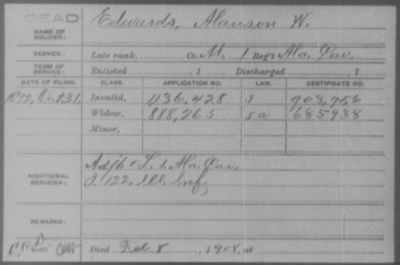 DEAD
NAME OF SOLDIER: Edwards, Alanson W.
SERVICE: Late rank, Co. M, 1 Reg't Ala. Cav.
TERM OF SERVICE: Enlisted , 1 Discharged , 1
DATE OF FILING. CLASS. APPLICATION NO. LAW. CERTIFICATE NO.
Invalid, 436,428 903,956
Widow, 888,265 685938
Minor,
ADDITIONAL SERVICES: Adjt & L. 1 Ala. Cav.
122, Ill. Inf.
REMARKS:
Died Feb 8, 1908, at